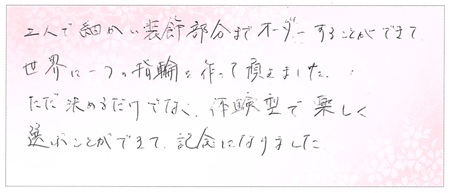 二人で細かい装飾部分までオーダーすることができて
世界に一つの指輪を作って頂えました。
ただ決めるだけでなく、体験型で楽しく
選ぶことができて、記念になりました